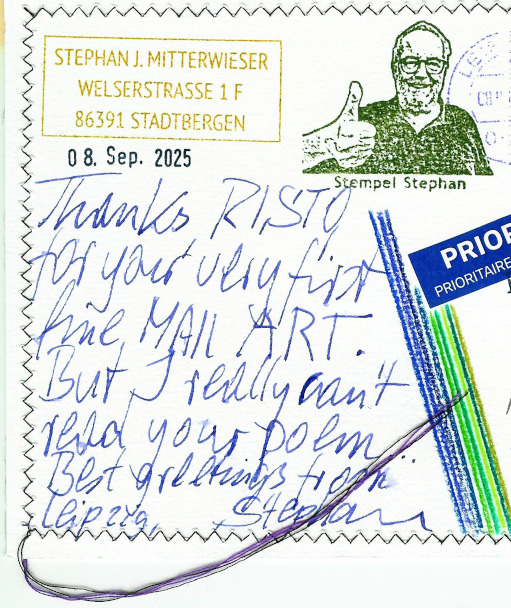 STEPHAN J. MITTERWIESER
WELSERSTRASSE 1 F
86391 STADTBERGEN
08. Sep. 2025
Stempel Stephan
PRIOR
PRIORITAIRE
Thanks RISTO
for your very first
fine MAIL ART.
But I really can't
read your poem
Best greetings from
Leipzig, Stephan